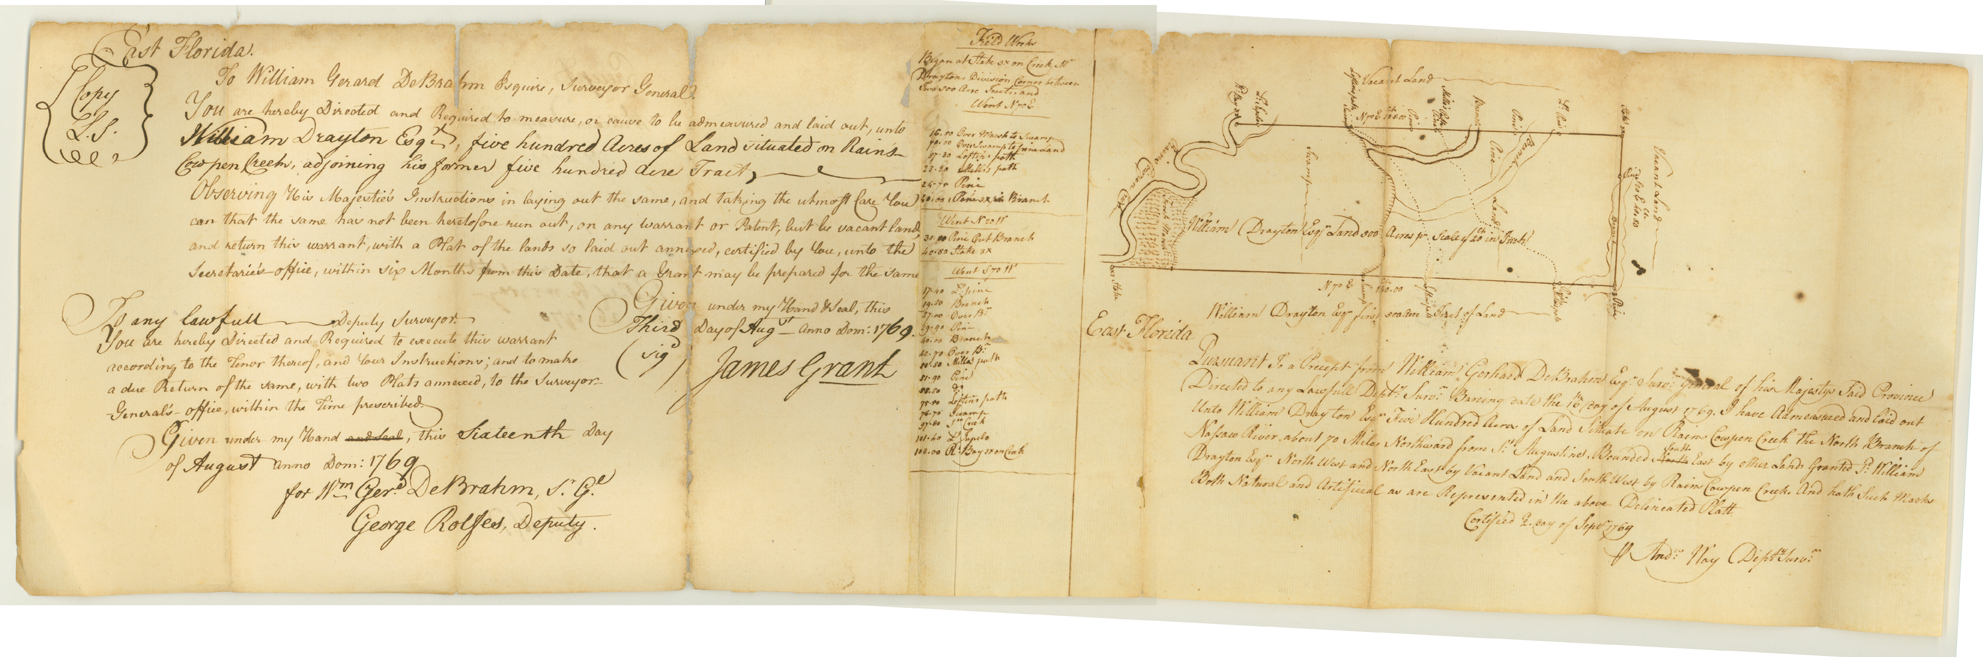 East Florida.
Copy
L.S.
To William Gerard DeBrahm Esquire, Surveyor General.
You are hereby Directed and Required to measure, or cause to be admeasured and laid out, unto
William Drayton Esqr., five hundred Acres of Land situated on Rain's
Cowpen Creek, adjoining his former five hundred acre Tract,
Observing His Majestie's Instructions in laying out the same, and taking the utmost Care You
can that the same has not been heretofore run out, on any warrant or Patent, but be vacant land,
and return this warrant, with a Plat of the lands so laid out annexed, certified by You, unto the
Secretarie's office, within six Months from this Date, that a Grant may be prepared for the same
Given under my Hand & Seal, this
Third Day of Augst. anno Dom: 1769.
(sigd)
James Grant
To any lawfull Deputy Surveyor.
You are hereby Directed and Required to execute this warrant
according to the Tenor thereof, and Your Instructions; and to make
a due Return of the same, with two Plats annexed, to the Surveyor
General's office, within the Time prescribed.
Given under my Hand and Seal, this Sixteenth Day
of August anno Dom: 1769
for Wm. Gerd. DeBrahm, S. Gl.
George Rolfes, Deputy.
Field Works
Began at Stake on Creek Wm
Draytons Division Corner between
Acre Tracts and
Went N 70 E
16.00 Over Marsh to Swamp
Over Swamp to pine land
Loftins path
Millets path
Pine
Pine Branch
Went N 20 W
Pine Out Branch
40.80 Stake
Went S 70 W
L. pine
Branch
Over Br.
Pine
Branch
Over Br.
Mills path
Pine
Loftins path
Swamp
Creek
L. Tupelo
100.00 R. Bay on Creek
Vacant Land
Vacant Land
Swamp
Pine
Land
Branch
William Drayton Esqr. Land 500 Acres pr. Scale of 20 in Inch
N 70 E 100.00
William Drayton Esqr. first 500 acres Tract of Land
East Florida
Pursuant To a Precept from William Gerhard DeBrahm Esqr. Survr. General of his Majestys Said Province
Directed to any Lawfull Depty. Survr. Bareing date the 16 day of August 1769. I have Admeasured and laid out
Unto William Drayton Esqr. Five Hundred Acres of Land Situate on Rains Cowpen Creek the North Branch of
Nassaw River about 70 Miles Northward from St. Augustine. Bounded South East by other Lands Granted Sd. William
Drayton Esqr. North West and North East by Vacant Land and South West by Rains Cowpen Creek. And hath Such Marks
Both Natural and Artificial as are Represented in the above Delineated Platt.
Certified 2 day of Septr. 1769
Andw. Way Depty. Survr.